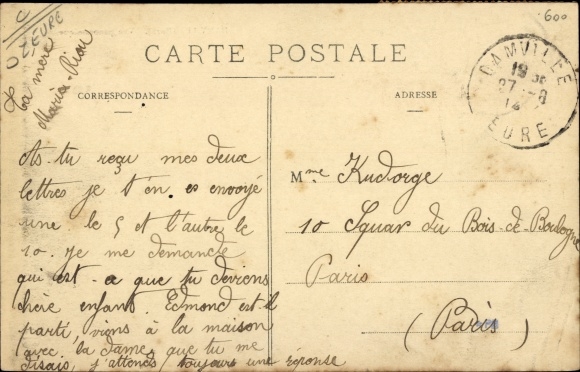 600
EURE
CARTE POSTALE
CORRESPONDANCE
ADRESSE
DAMVILLE
19 30
27 -8
14
EURE
As-tu reçu mes deux
lettres je t'en es envoyé
une le 5 et l'autre le
10. Je me demande
qui est-a que tu deviens
chère enfant. Edmond est-il
parti viens à la maison
avec la dame que tu me
disais, j'attends toujours une réponse
Ta mère
Maria Riou
Mme Kudorge
10 Squar du Bois-de-Boulogne
Paris
(Paris)